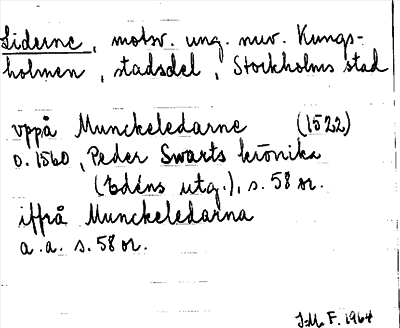 Liderne, motsv. ung. nuv. Kungs-
holmen, stadsdel, Stockholms stad
uppå Munckeledarne (1522)
o. 1560, Peder Swarts krönika
(Edéns utg.), s. 58 or.
iffrå Munckeledarna
a.a. s. 58 or.
F. 1964